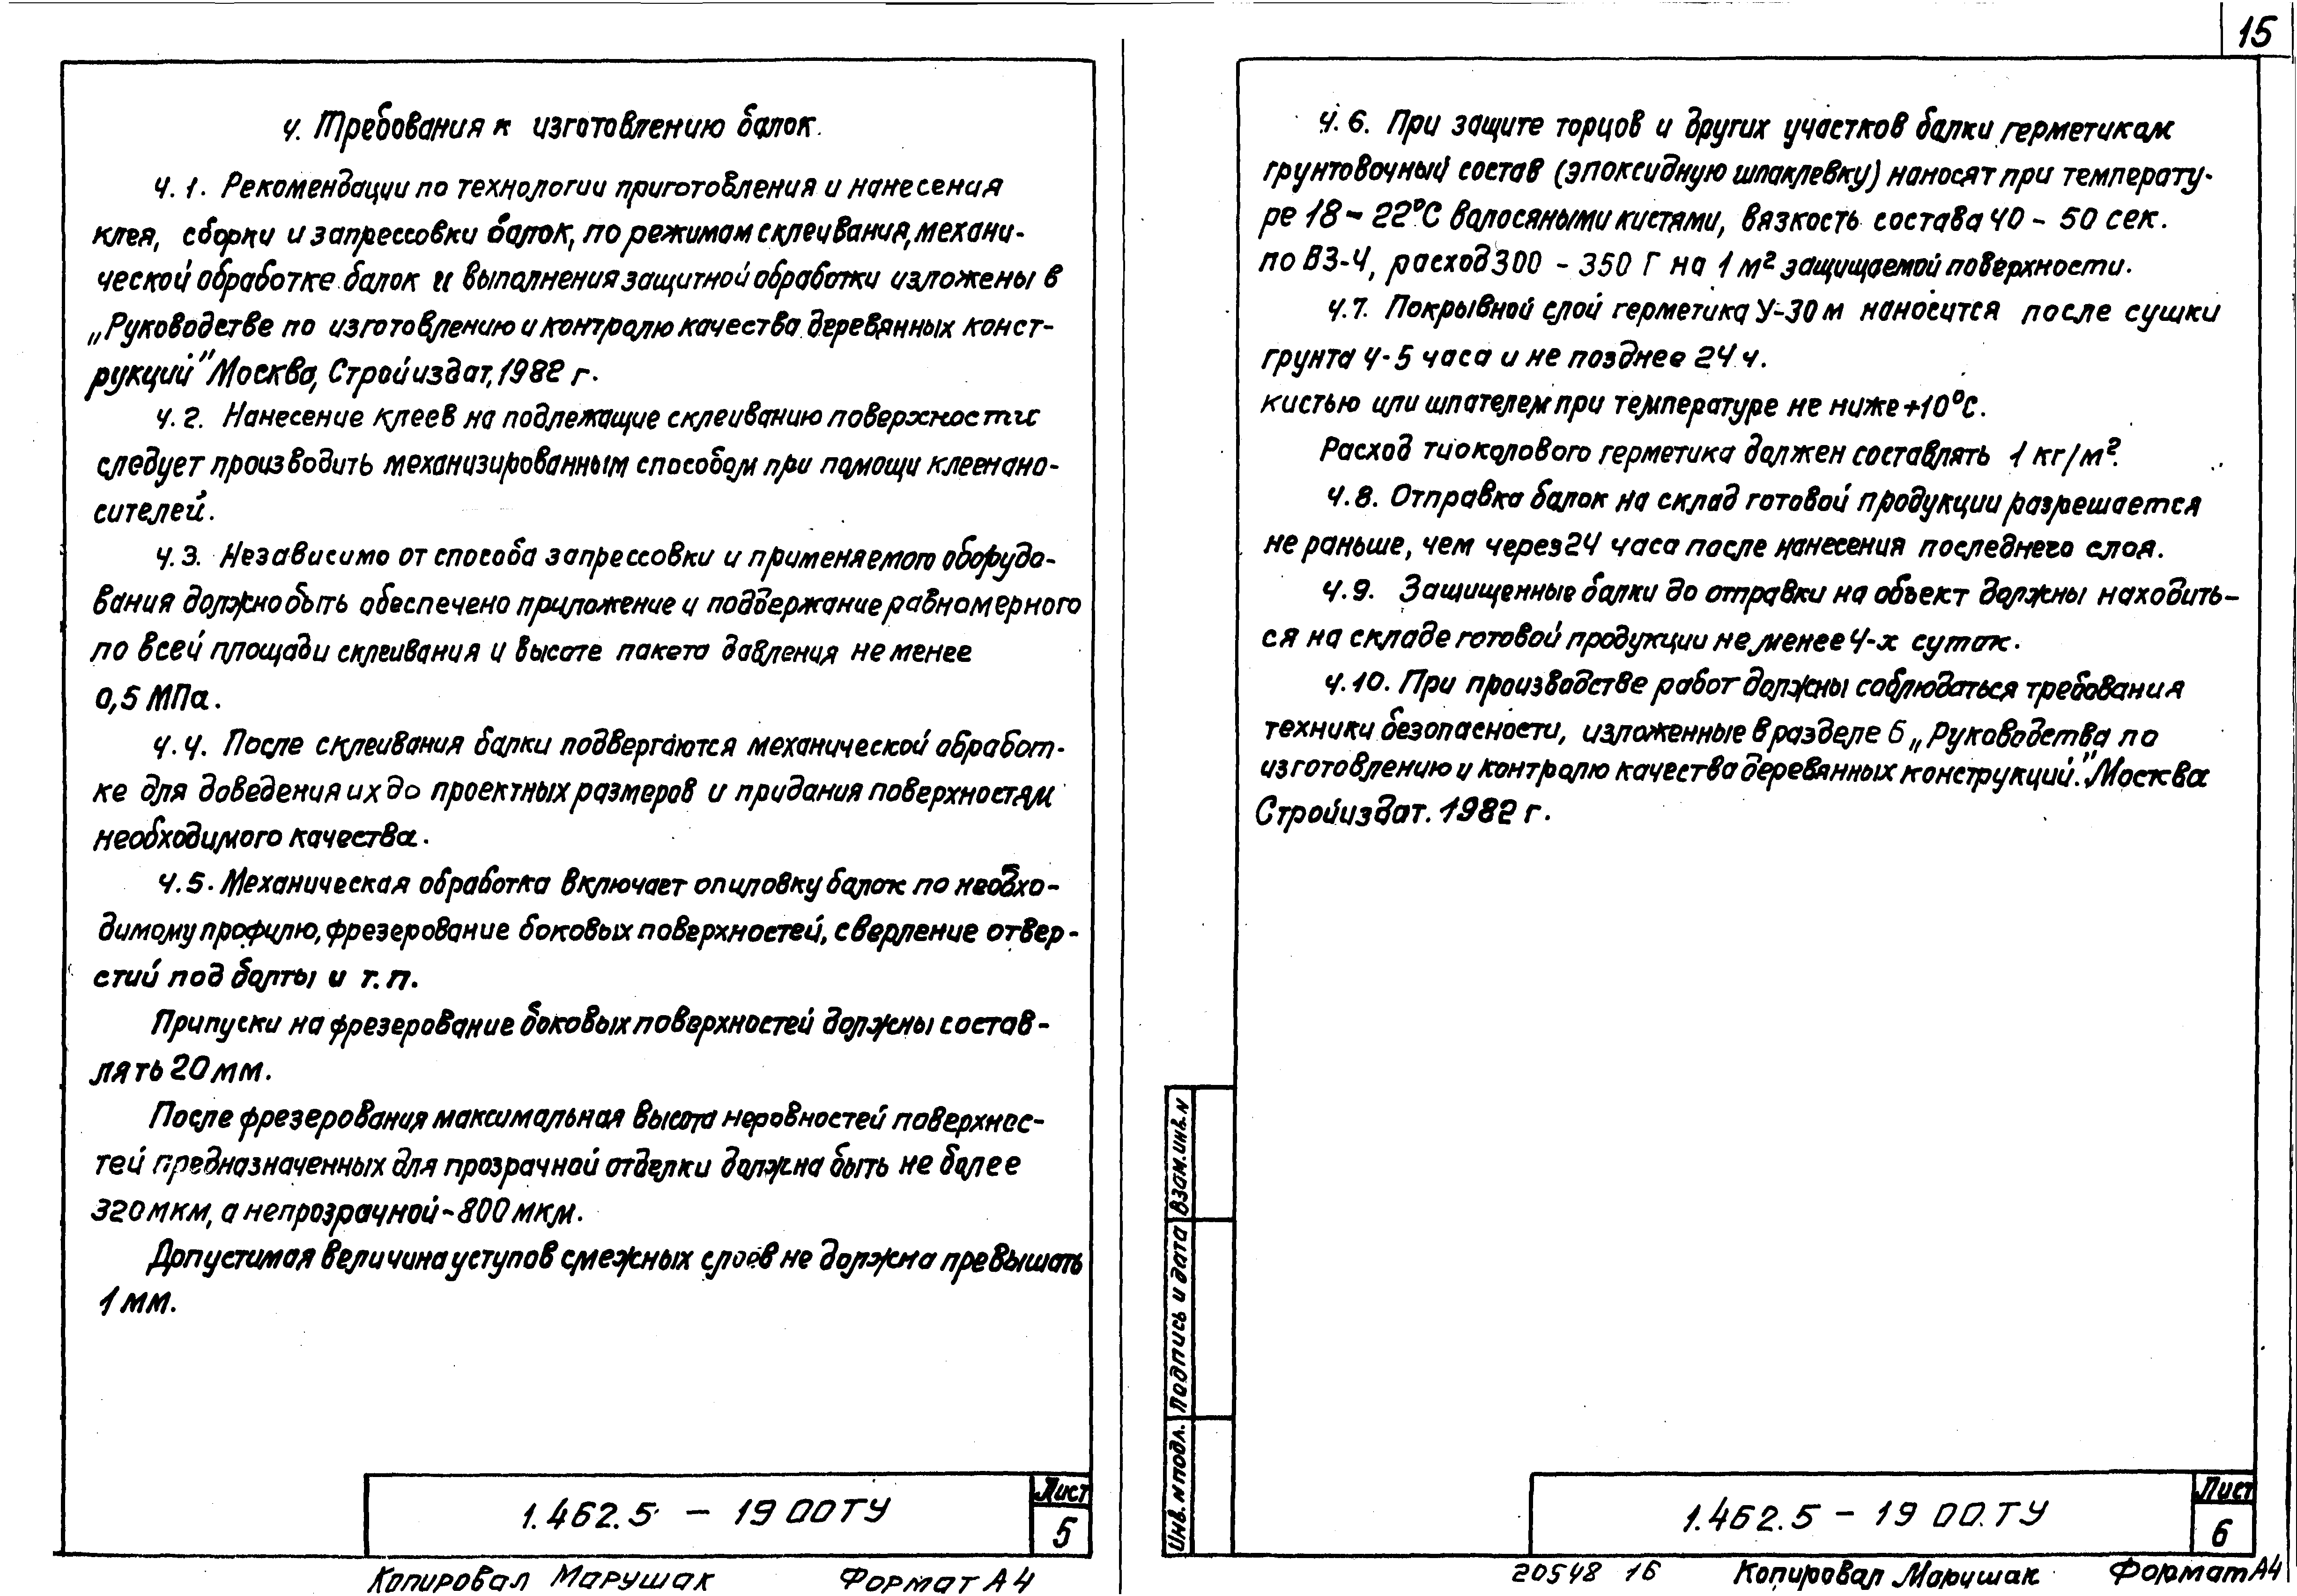 15
4. Требования к изготовлению балок.
4.1. Рекомендации по технологии приготовления и нанесения
клея, сборки и запрессовки балок, по режимам склеивания, механи-
ческой обработке балок и выполнения защитной обработки изложены в
„Руководстве по изготовлению и контролю качества деревянных конст-
рукций" Москва, Стройиздат, 1982 г.
4.2. Нанесение клеев на подлежащие склеиванию поверхности
следует производить механизированным способом при помощи клеенано-
сителей.
4.3. Независимо от способа запрессовки и применяемого оборудо-
вания должно быть обеспечено приложение и поддержание равномерного
по всей площади склеивания и высоте пакета давления не менее
0,5 МПа.
4.4. После склеивания балки подвергаются механической обработ-
ке для доведения их до проектных размеров и придания поверхностям
необходимого качества.
4.5. Механическая обработка включает опиловку балок по необхо-
димому профилю, фрезерование боковых поверхностей, сверление отвер-
стий под болты и т.п.
Припуски на фрезерование боковых поверхностей должны состав-
лять 20 мм.
После фрезерования максимальная высота неровностей поверхнос-
тей предназначенных для прозрачной отделки должна быть не более
320 мкм, а непрозрачной - 800 мкм.
Допустимая величина уступов смежных слоев не должна превышать
1 мм.
1.462.5 - 19 00ТУ
Лист
5
Копировал Марушак Формат А4
4.6. При защите торцов и других участков балки герметикам
грунтовочный состав (эпоксидную шпаклевку) наносят при температу-
ре 18 - 22°С волосяными кистями, вязкость состава 40 - 50 сек.
по ВЗ-4, расход 300 - 350 Г на 1 м² защищаемой поверхности.
4.7. Покрывной слой герметика У-30м наносится после сушки
грунта 4-5 часа и не позднее 24 ч.
кистью или шпателем при температуре не ниже +10°С.
Расход тиоколового герметика должен составлять 1 кг/м².
4.8. Отправка балок на склад готовой продукции разрешается
не раньше, чем через 24 часа после нанесения последнего слоя.
4.9. Защищенные балки до отправки на объект должны находить-
ся на складе готовой продукции не менее 4-х суток.
4.10. При производстве работ должны соблюдаться требования
техники безопасности, изложенные в разделе 6 „Руководства по
изготовлению и контролю качества деревянных конструкций." Москва
Стройиздат. 1982 г.
Взам.инв.N
Подпись и дата
Инв. N подл.
1.462.5 - 19 00.ТУ
Лист
6
20548 16 Копировал Марушак Формат А4